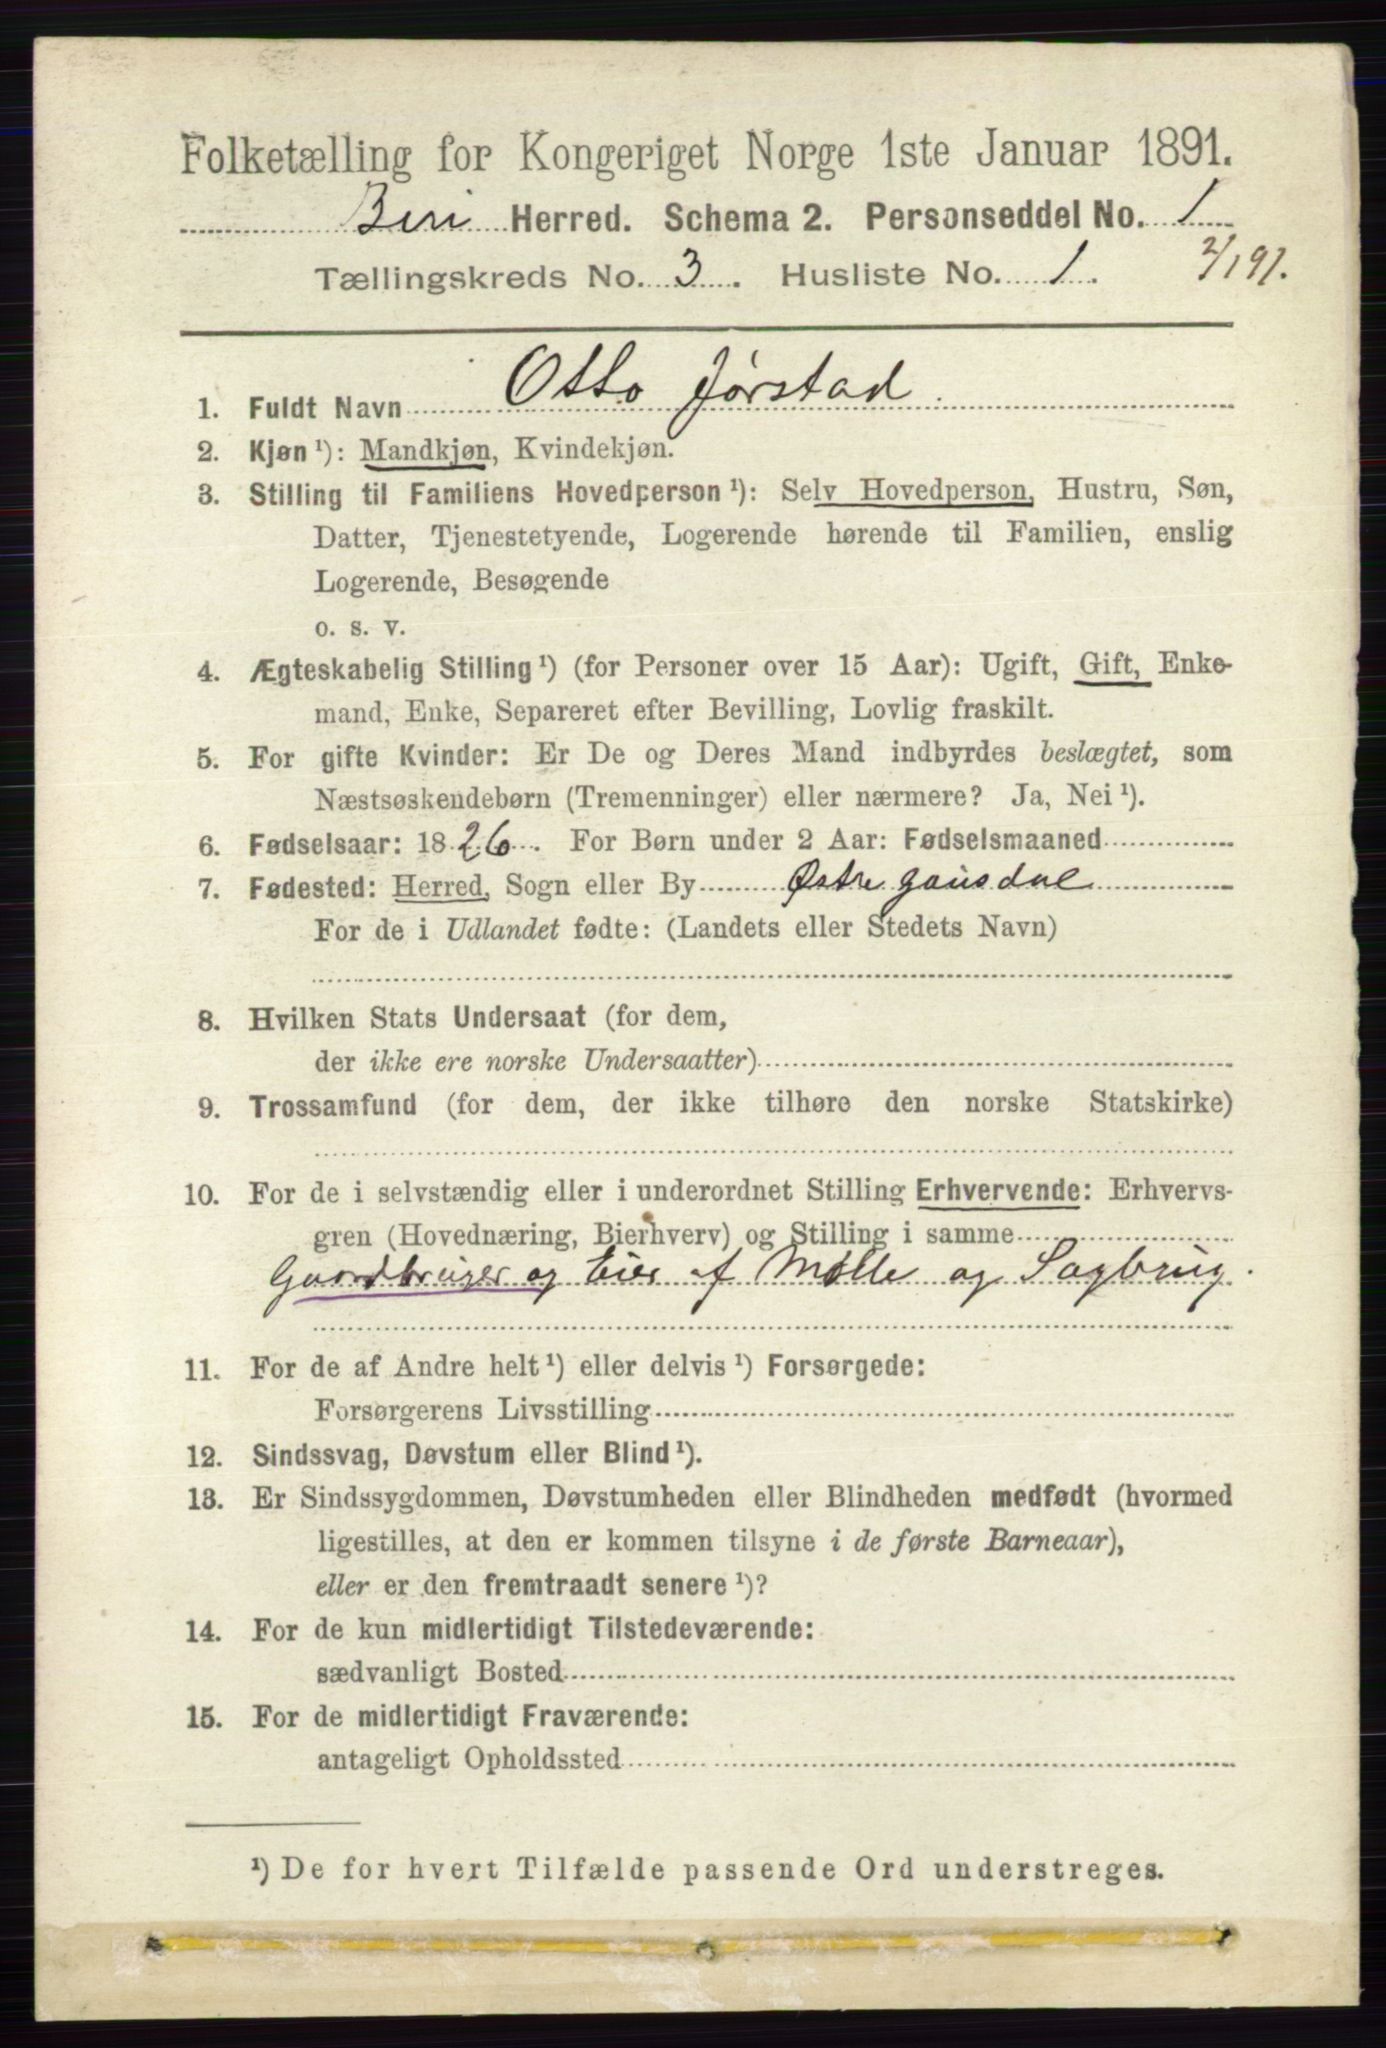 Folketælling for Kongeriget Norge 1ste Januar 1891.
Biri Herred. Schema 2. Personseddel No. 1
Tællingskreds No. 3. Husliste No. 1. 2/191.
1. Fuldt Navn Otto Jørstad.
2. Kjøn ¹): Mandkjøn, Kvindekjøn.
3. Stilling til Familiens Hovedperson ¹): Selv Hovedperson, Hustru, Søn,
Datter, Tjenestetyende, Logerende hørende til Familien, enslig
Logerende, Besøgende
o. s. v.
4. Ægteskabelig Stilling ¹) (for Personer over 15 Aar): Ugift, Gift, Enke-
mand, Enke, Separeret efter Bevilling, Lovlig fraskilt.
5. For gifte Kvinder: Er De og Deres Mand indbyrdes beslægtet, som
Næstsøskendebørn (Tremenninger) eller nærmere? Ja, Nei ¹).
6. Fødselsaar: 1826. For Børn under 2 Aar: Fødselsmaaned
7. Fødested: Herred, Sogn eller By Østre Gausdal
For de i Udlandet fødte: (Landets eller Stedets Navn)
8. Hvilken Stats Undersaat (for dem,
der ikke ere norske Undersaatter)
9. Trossamfund (for dem, der ikke tilhøre den norske Statskirke)
10. For de i selvstændig eller i underordnet Stilling Erhvervende: Erhvervs-
gren (Hovednæring, Bierhverv) og Stilling i samme
Gaardbruger og Eier af Mølle og Sagbrug.
11. For de af Andre helt ¹) eller delvis ¹) Forsørgede:
Forsørgerens Livsstilling
12. Sindssvag, Døvstum eller Blind ¹).
13. Er Sindssygdommen, Døvstumheden eller Blindheden medfødt (hvormed
ligestilles, at den er kommen tilsyne i de første Barneaar),
eller er den fremtraadt senere ¹)?
14. For de kun midlertidigt Tilstedeværende:
sædvanligt Bosted
15. For de midlertidigt Fraværende:
antageligt Opholdssted
¹) De for hvert Tilfælde passende Ord understreges.